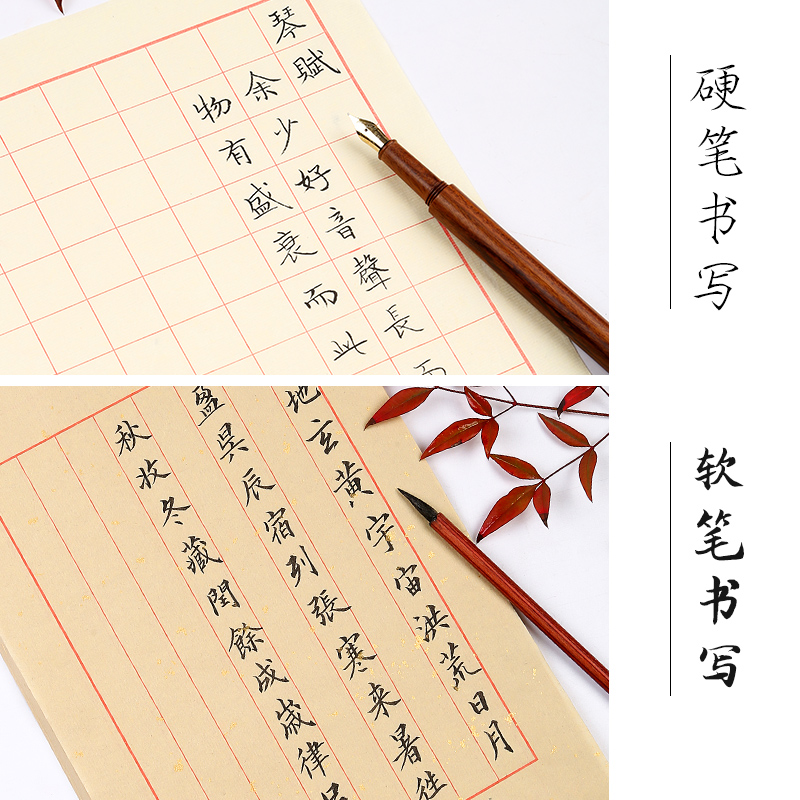 琴賦
余少好音聲長而
物有盛衰而此
硬笔书写
地玄黃宇宙洪荒日月
盈昃辰宿列張寒来暑往
秋收冬藏閏餘成歲律
软笔书写